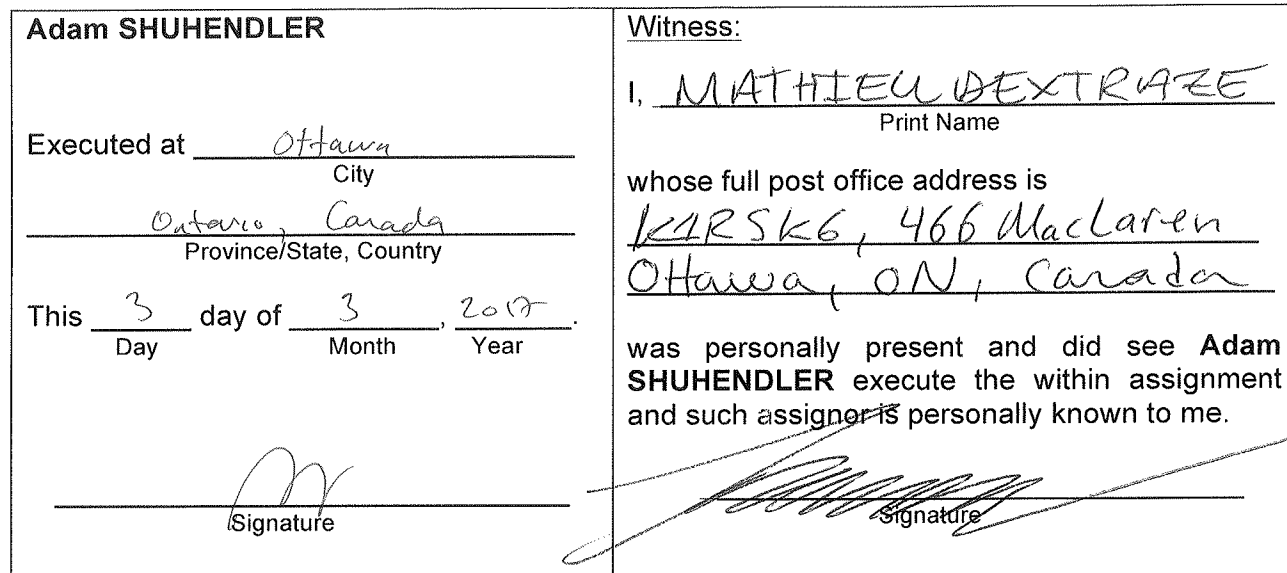 Adam SHUHENDLER
Executed at Ottawa
City
Ontario, Canada
Province/State, Country
This 3 day of 3, 2017.
Day Month Year
Signature
Witness:
I, MATHIEU DEXTRAZE
Print Name
whose full post office address is
K1R5K6, 466 MacLaren
Ottawa, ON, Canada
was personally present and did see Adam
SHUHENDLER execute the within assignment
and such assignor is personally known to me.
Signature